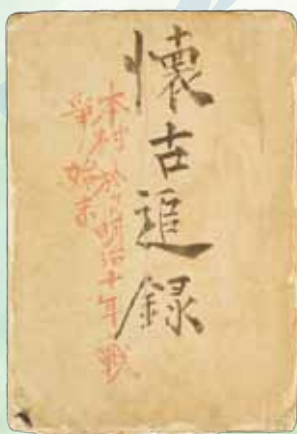 懐古追録
本村於ケ明治十年戦
争ノ始末